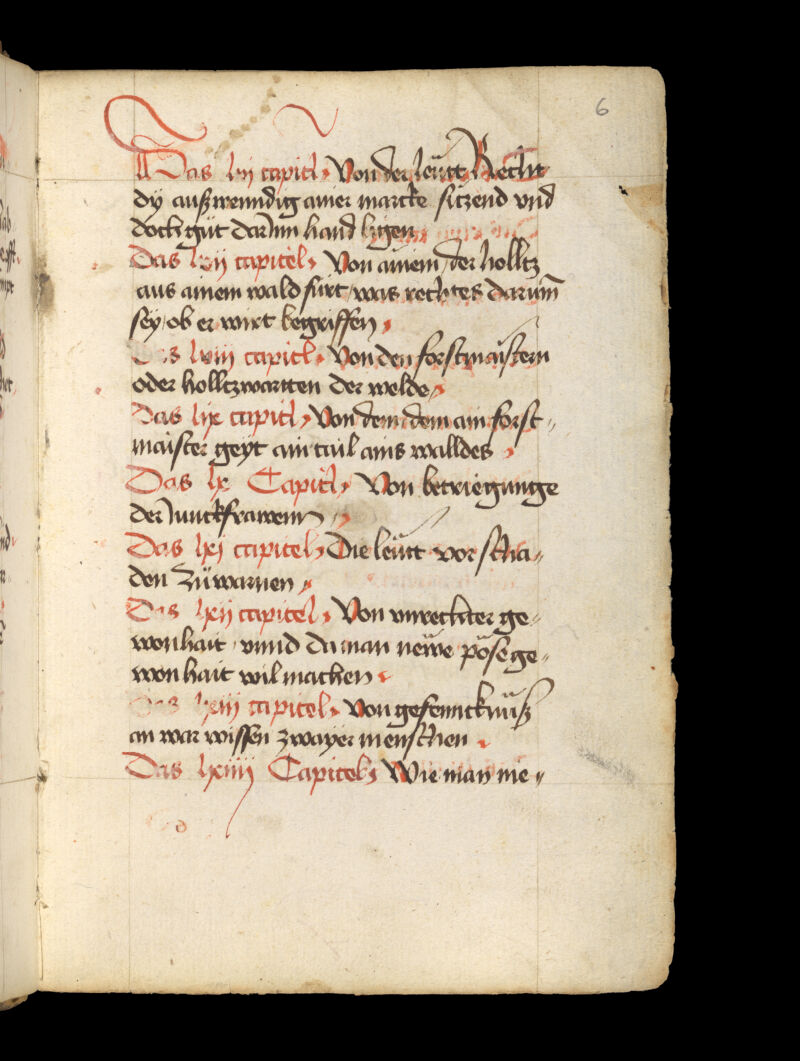 6
Das lvj capitl Von der leütt Recht
dÿ auszwenndig ainer marcke sitzend vnd
doch güt darinn hand ligen
Das lvij capitel Von ainem der holltz
aus ainem wald fürt was rechtes darum̄
seÿ ob er wirt begriffen
Das lviij capitl Von den forstmaistern
oder holltzwartten der welde
Das lix capitl Von dem dem ain forst„
maister geyt ain tail ains walldes
Das lx Capitl Von betriegunge
der Junckfrawenn
Das lxj capitel Die leütt vor scha„
den zü warnen
Das lxij capitel Von vnrechter ge„
wonhait vnnd da man newe pöse ge„
wonhait wil machen
Das lxiij capitel Von gefennicknüsz
an war wissen zwayer menschen
Das lxiiij Capitel Wie man nie„